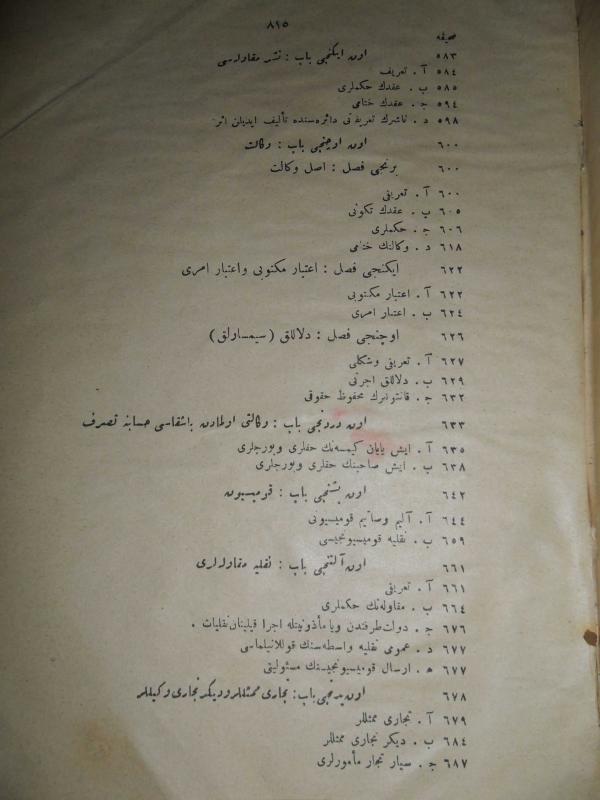 ٨١٥
صحیفه
٥٨٣ اون ایكنجی باب : نشر مقاوله‌سی
٥٨٤ آ . تعریف
٥٨٥ ب . عقدك حكملری
٥٩٤ ج . عقدك ختامی
٥٩٨ د . ناشرك تعریفی دائره‌سنده تألیف ایدیلن اثر
٦٠٠ اون اوچنجی باب : وكالت
٦٠٠ برنجی فصل : اصل وكالت
٦٠٠ آ . تعریفی
٦٠٥ ب . عقدك تكونی
٦٠٦ ج . حكملری
٦١٨ د . وكالتك ختامی
٦٢٢ ایكنجی فصل : اعتبار مكتوبی واعتبار امری
٦٢٢ آ . اعتبار مكتوبی
٦٢٤ ب . اعتبار امری
٦٢٦ اوچنجی فصل : دلاللق (سیمسارلق)
٦٢٧ آ . تعریفی وشكلی
٦٢٩ ب . دلاللق اجرتی
٦٣٢ ج . قانتونلرك محفوظ حقوقی
٦٣٣ اون دردنجی باب : وكالتی اولمادن باشقاسی حسابنه تصرف
٦٣٥ آ . ایش یاپان كیمسه‌نك حقلری وبورجلری
٦٣٨ ب . ایش صاحبنك حقلری وبورجلری
٦٤٢ اون بشنجی باب : قومیسیون
٦٤٤ آ . آلیم وصاتیم قومیسیونی
٦٥٩ ب . نقلیه قومیسیونجیسی
٦٦١ اون آلتنجی باب : نقلیه مقاوله‌لری
٦٦١ آ . تعریفی
٦٦٤ ب . مقاوله‌نك حكملری
٦٧٦ ج . دولت طرفندن ویا مأذونیتله اجرا قیلینان نقلیات .
٦٧٧ د . عمومی نقلیه واسطه‌سنك قوللانیلماسی
٦٧٧ ه . ارسال قومیسیونجیسنك مسئولیتی
٦٧٨ اون یدنجی باب : تجاری ممثللر ودیكر تجاری وكیللر
٦٧٩ آ . تجاری ممثللر
٦٨٤ ب . دیكر تجاری ممثللر
٦٨٧ ج . سیار تجار مأمورلری